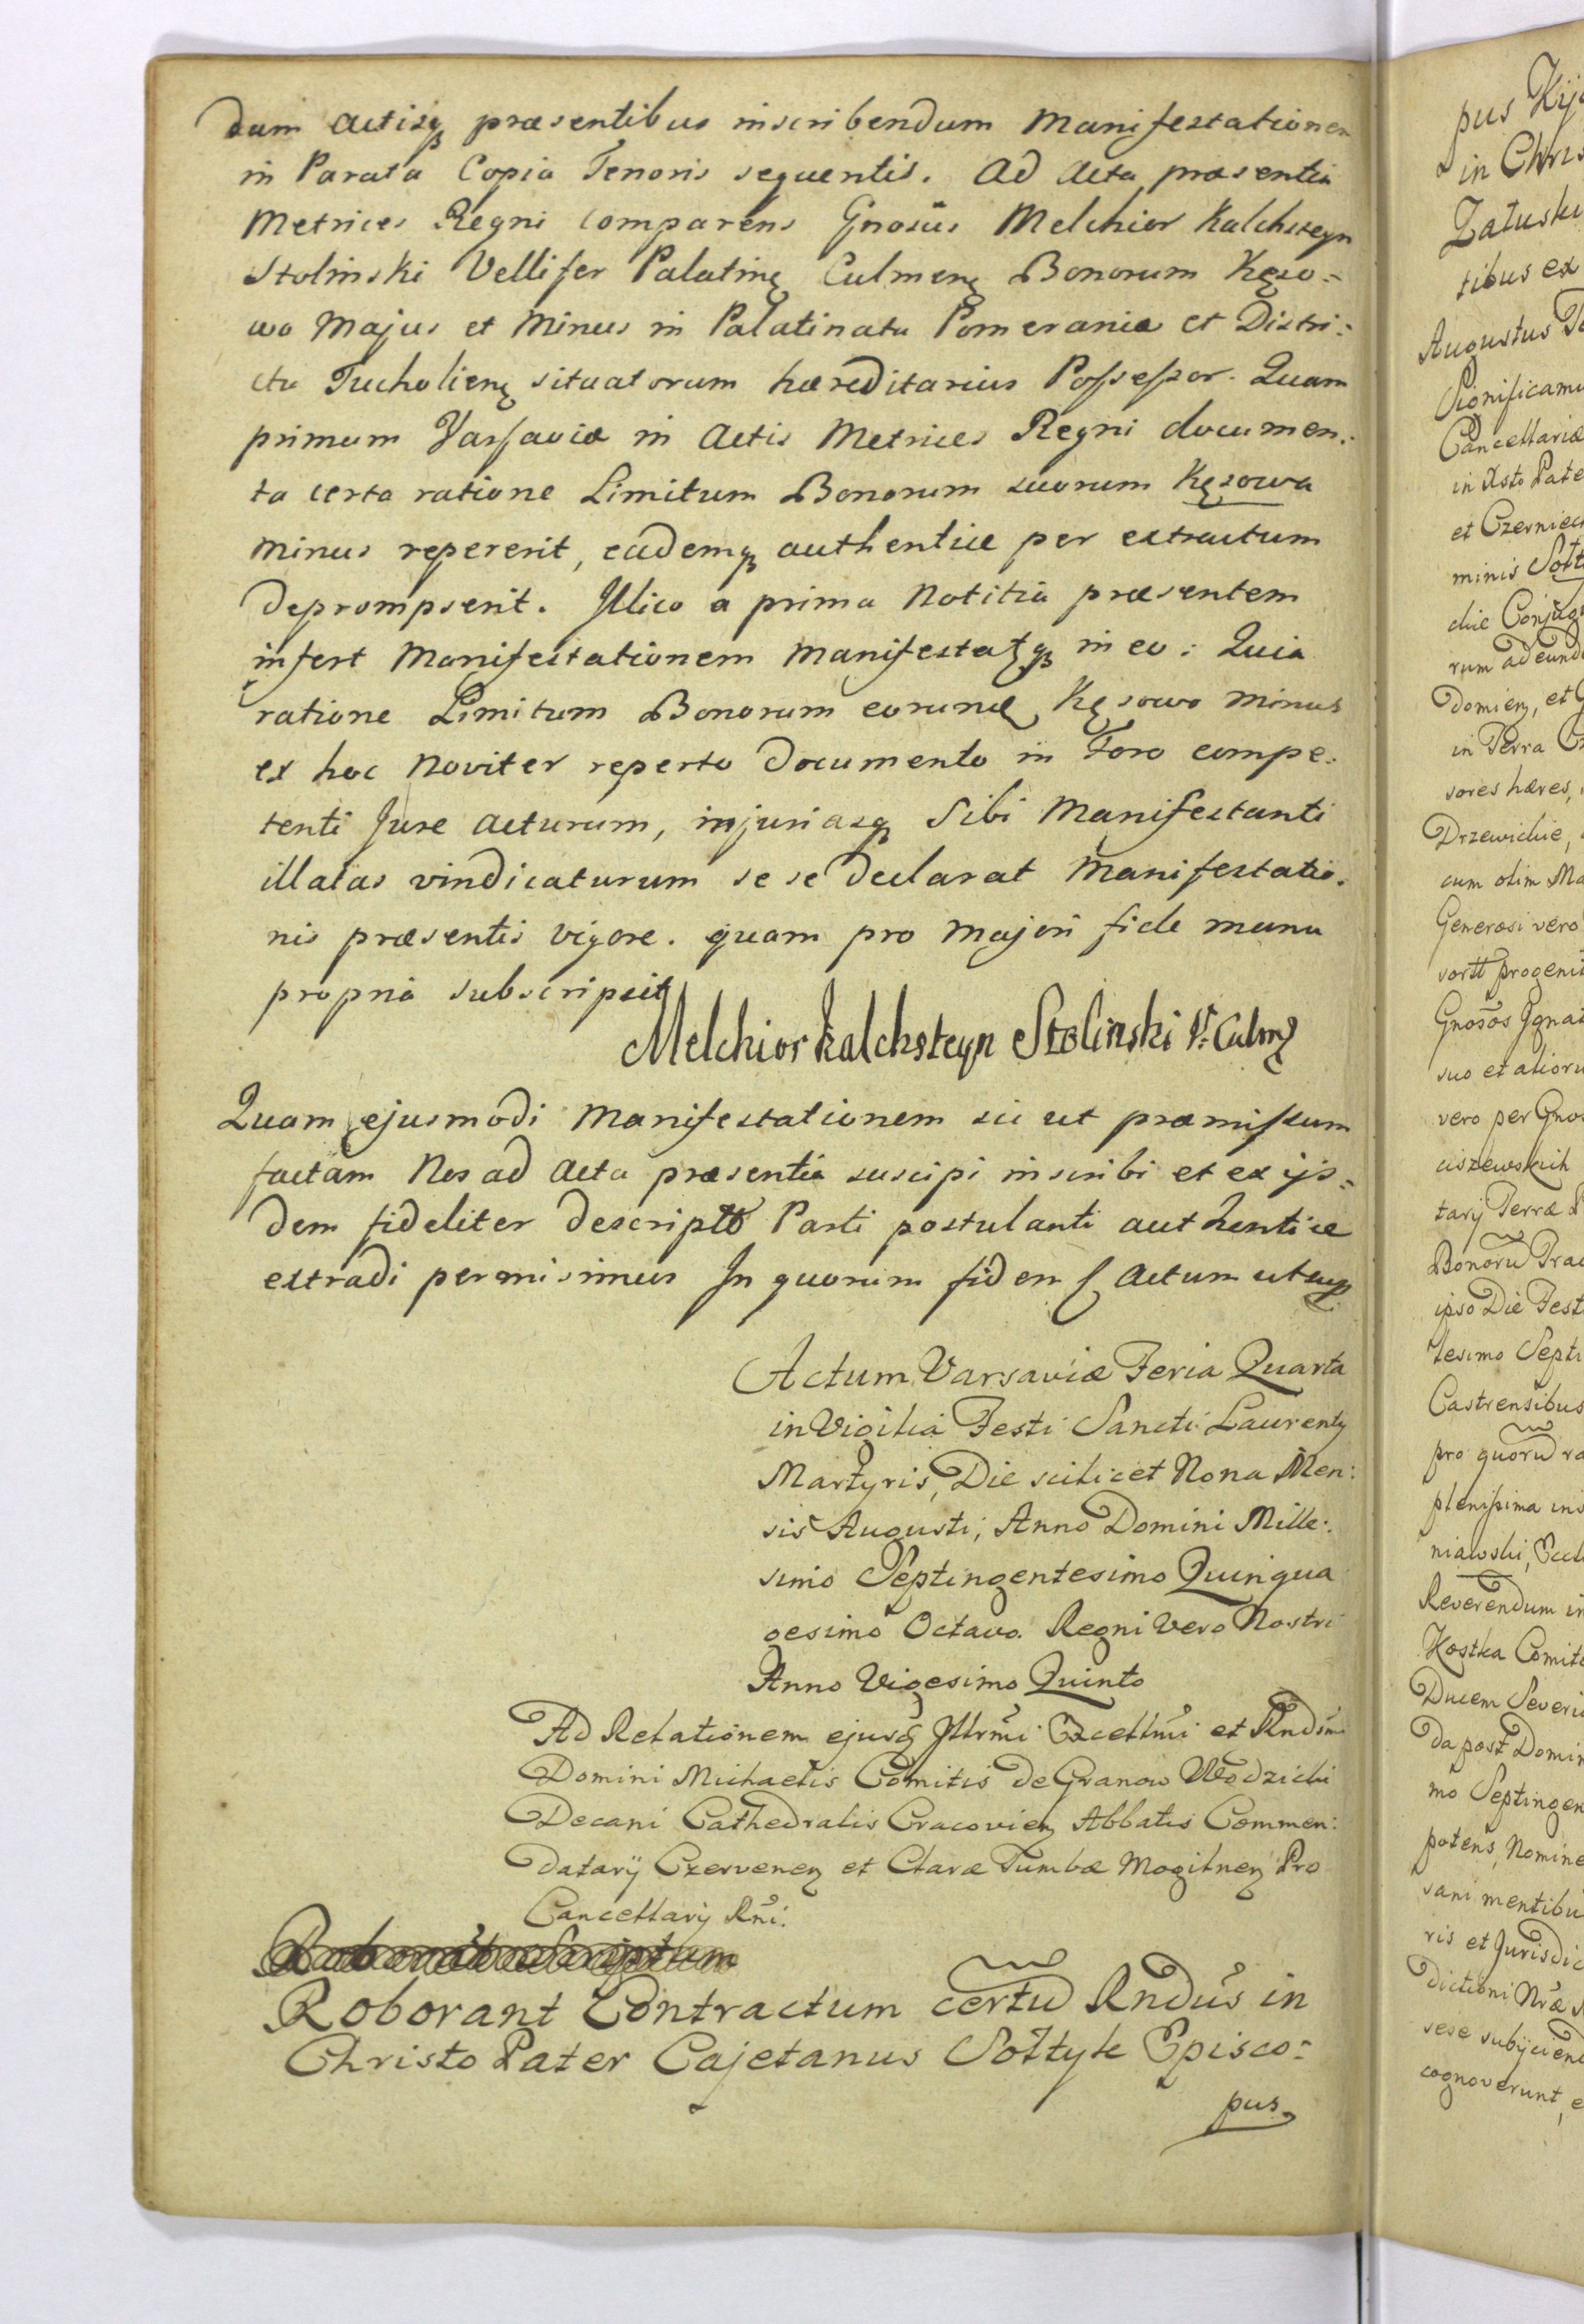 dum Actisq præsentibus inscribendum Manifestationem
in Parata Copia Tenoris sequentis. Ad Acta præsentia
Metrices Regni comparens Gnosus Melchior Kalchsteyn
Stolinski Vellifer Palatinę Culmenę Bonorum Kęso=
wo Majus et Minus in Palatinatu Pomeraniæ et Distri:
ctu Tucholienę situatorum hæreditarius Possessor. Quam
primum Varsaviæ in Actis Metrices Regni documen:
ta certa ratione Limitum Bonorum suorum Kęsowa
Minus repererit, eademq authentice per extractum
deprompserit. Illico a prima Notitia præsentem
infert Manifestationem Manifestatq in eo: Quia
ratione Limitum Bonorum eorund Kęsowo Minus
ex hoc Noviter reperto Documento in Foro compe:
tenti Jure acturum, injuriasq Sibi Manifestanti
illatas vindicaturum se se declarat Manifestatio:
nis præsentis vigore. quam pro Majori fide manu
propria subscripsit
Melchior Kalchsteyn Stolinski V. Culmę
Quam ejusmodi Manifestationem sic ut præmissum
factam Nos ad Acta præsentia suscipi inscribi et ex ijs=
dem fideliter descriptb Parti postulanti authentice
extradi permisimus In quorum fidem Actum ut sup
Actum Varsaviæ Feria Quarta
in Vigilia Festi Sancti Laurentij
Martyris, Die scilicet Nona Men:
sis Augusti, Anno Domini Mille:
simo Septingentesimo Quinqua
gesimo Octavo. Regni vero Nostri
Anno Vigesimo Quinto
Ad Relationem ejusd Illrmi Excellmi et Rndsmi
Domini Michaelis Comitis de Granow Wodzicki
Decani Cathedralis Cracovienę Abbatis Commen:
datarij Czervenenę et Claræ Tumbæ Mogilnenę Pro
Cancellarij Rni.
Roborant Contractum certu Rndus in
Christo Pater Cajetanus Sołtyk Episco=
pus
pus
in
Załuski
tibus ex
Augustus
Cancellariæ
et
minis
rum ad
et
in Terra
sores hæres,
Drzewickie,
cum olim
Generosi vero
Gnosos
suo et aliorum
vero per
ciszewskich
tarij Terræ
Bonoru
ipso Die
Castrensibus
pro quoru
plenissima
Reverendum in
Kostka
Ducem
da post
potens, Nomine
ris et
dictioni Nræ
cognoverunt,